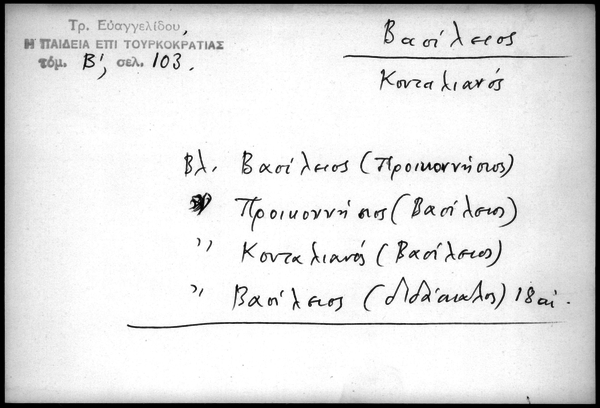 Τρ. Εὐαγγελίδου,
Η ΠΑΙΔΕΙΑ ΕΠΙ ΤΟΥΡΚΟΚΡΑΤΙΑΣ
τόμ. Β', σελ. 103.
Βασίλειος
Κουταλιανός
Βλ. Βασίλειος (Προικοννήσιος)
Προικοννήσιος (Βασίλειος)
" Κουταλιανός (Βασίλειος)
" Βασίλειος (διδάσκαλος) 18 αἰ.